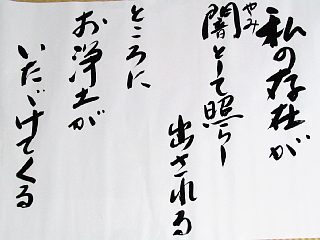 私の存在が
闇やみとして照らし
出される
ところに
お浄土が
いたゞけてくる